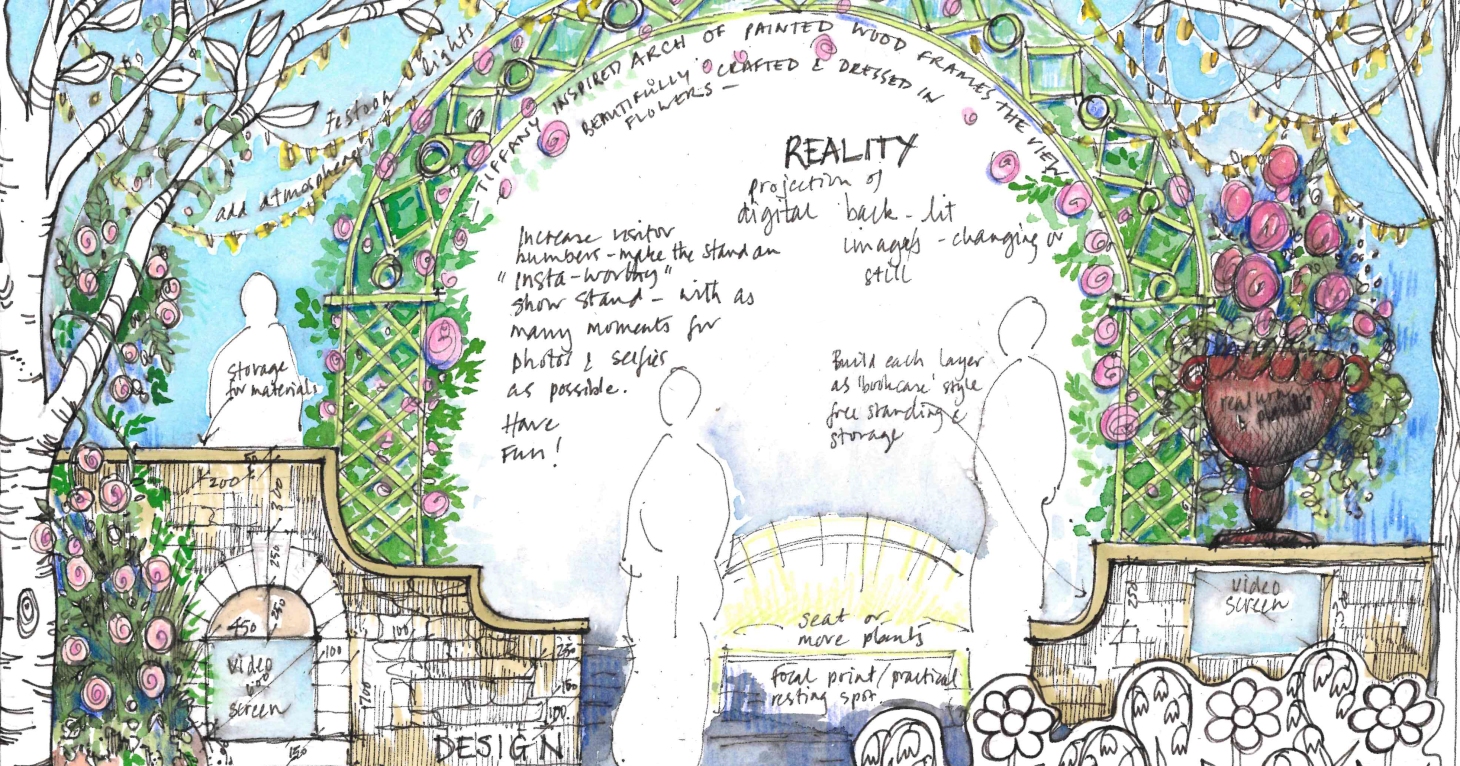 Festoon lights
add atmosphere
TIFFANY INSPIRED ARCH OF PAINTED WOOD FRAMES THE VIEW
BEAUTIFULLY CRAFTED & DRESSED IN
FLOWERS -
REALITY
projection of
digital back-lit
images - changing or
still
Increase visitor
numbers - make the stand an
"insta-worthy"
show stand - with as
many moments for
photos & selfies
as possible.
Have
Fun!
Build each layer
as 'bookcase' style
free standing &
storage
storage
for materials
real urn
200
300
250
250
450
100
video
screen
700
150
250
150
100
DESIGN
seat or
more plants
focal point/practical
resting spot
250
video
screen